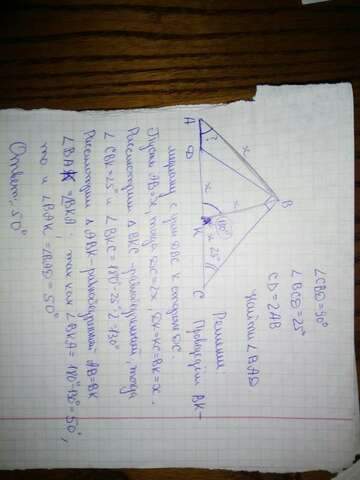 ∠CBD=90°
∠BCD=25°
CD=2AB
Найти ∠BAD
Решение
B
A
D
K
C
?
x
x
x
x
130°
25°
Проведём BK-
медиану с угла DBC к стороне DC.
Пусть AB=x, тогда DC=2x, DK=KC=BK=x.
Рассмотрим Δ BKC-равнобедренный, тогда
∠CBK=25° и ∠BKC=180°-25°·2=130°
Рассмотрим Δ ABK-равнобедренный AB=BK
∠BAK=∠BKA, так как ∠BKA=180°-130°=50°,
то и ∠BAK=∠BAD=50°
Ответ: 50°